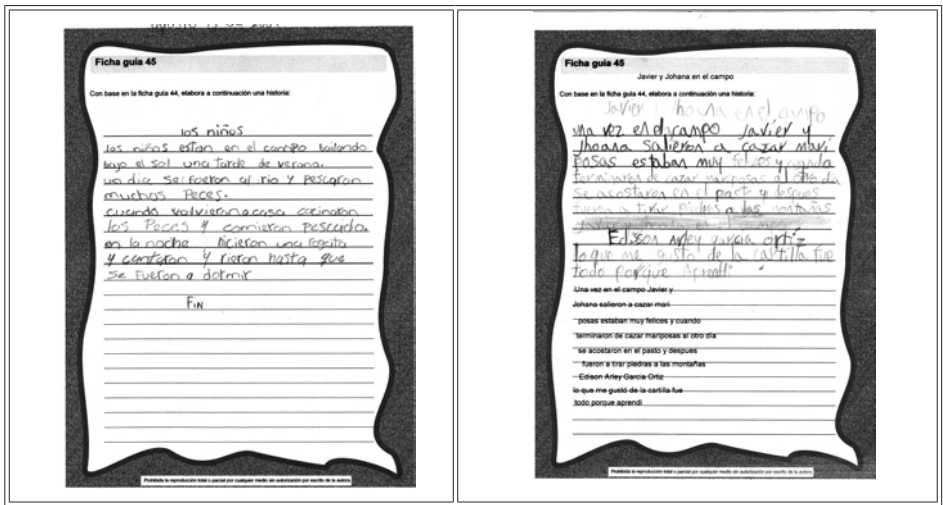 Ficha guía 45
Con base en la ficha guía 44, elabora a continuación una historia:
los niños
los niños estan en el campo bailando
bajo el sol una tarde de verano.
un dia se fueron al rio y pescaron
muchos Peces.
cuando volvieron a casa cocinaron
los Peces y comieron pescado.
en la noche hicieron una fogata
y cantaron y rieron hasta que
se fueron a dormir
FIN
Prohibida la reproducción total o parcial por cualquier medio sin autorización por escrito de la autora.
Ficha guía 45
Javier y Johana en el campo
Con base en la ficha guía 44, elabora a continuación una historia:
Javier en el campo
una vez en el campo Javier y
Jhoana salieron a cazar mari
posas estaban muy felizes y cuando
terminaron de cazar mariposas al otro dia
se acostaron en el pasto y despues
fueron a tirar piedras a las montañas
Edison Arley Garcia ortíz
lo que me gusto de la cartilla fue
todo porque Aprendi
Una vez en el campo Javier y
Johana salieron a cazar mari
posas estaban muy felices y cuando
terminaron de cazar mariposas al otro día
se acostaron en el pasto y despues
fueron a tirar piedras a las montañas
Edison Arley Garcia Ortiz
lo que me gustó de la cartilla fue
todo porque aprendi
Prohibida la reproducción total o parcial por cualquier medio sin autorización por escrito de la autora.